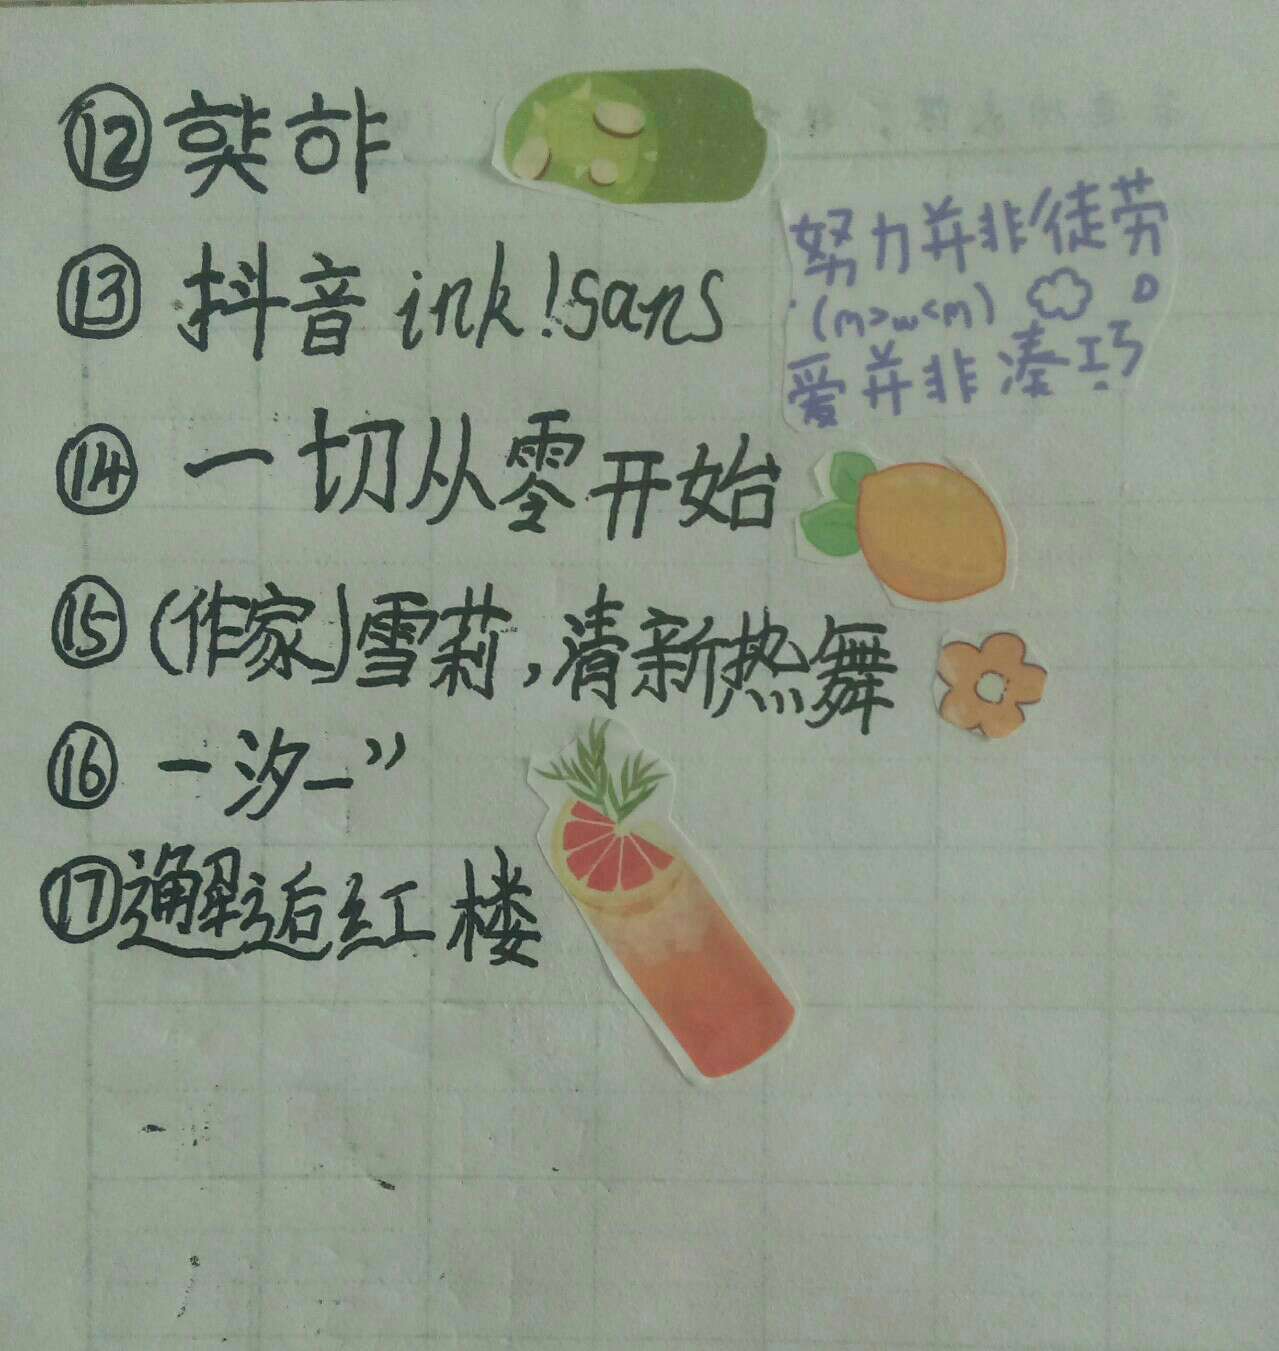 ⑬ 抖音 ink!sans
努力并非徒劳
(m>w<m)
爱并非凑巧
⑭ 一切从零开始
⑮ (作家)雪莉,清新热舞
⑯ 一汐一”
⑰ 邂逅红楼